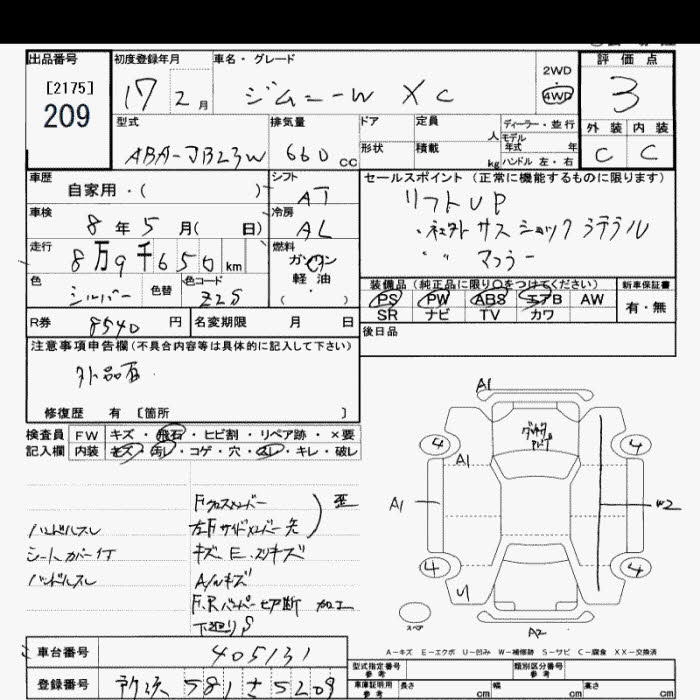 出品番号
[2175]
209
初度登録年月
17 2月
車名・グレード
ジムニーW XC
2WD
4WD
評価点
3
外装 内装
C C
型式
ABA-JB23W
排気量
660 cc
ドア
形状
定員 人
積載 kg
ディーラー・並行
モデル年式 年
ハンドル 左・右
車歴
自家用・( )
シフト
AT
セールスポイント (正常に機能するものに限ります)
リフトUP
社外 サスショック ラテラル
〃 マフラー
車検
8年5月( 日)
冷房
AL
走行
8万9千650km
燃料
ガソリン
軽油
( ・ )
色
シルバー
色替
色コード
Z2S
装備品 (純正品に限り○をつけてください)
PS PW ABS エアB AW
SR ナビ TV カワ
新車保証書
有・無
R券
8540円
名変期限 月 日
後日品
注意事項申告欄(不具合内容等は具体的に記入して下さい)
外品有
修復歴 有 [箇所 ]
検査員記入欄
FW キズ・飛石・ヒビ割・リペア跡・×要
内装 キズ・汚レ・コゲ・穴・スレ・キレ・破レ
ハンドルスレ
シートカバー付
F.クロスメンバー
左右Fサイドメンバー先
歪
キズ E. スリキズ
A/Wキズ
F.Rバンパー 切断 加工
下廻りS
A1
4
4
A1
A1
W2
4
4
U
スペア
A2
A-キズ E-エクボ U-凹み W-補修跡 S-サビ C-腐食 XX-交換済
車台番号
405131
登録番号
所沢 581 さ 5209
型式指定番号
参考
類別区分番号
参考
車庫証明用
参考
長さ cm
幅 cm
高さ cm